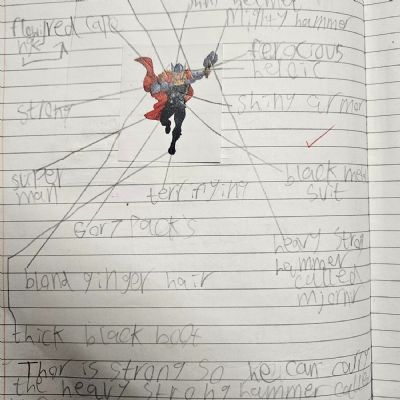 flowi red cape
helmet
Mighty hammer
ferocious
heroic
strong
shiny armor
super
man
terrifying
black metal
suit
Gort Pack's
heavy strong
hammer
called
mjornr
blond ginger hair
thick black boot
Thor is strong so he can carry
the heavy strong hammer called